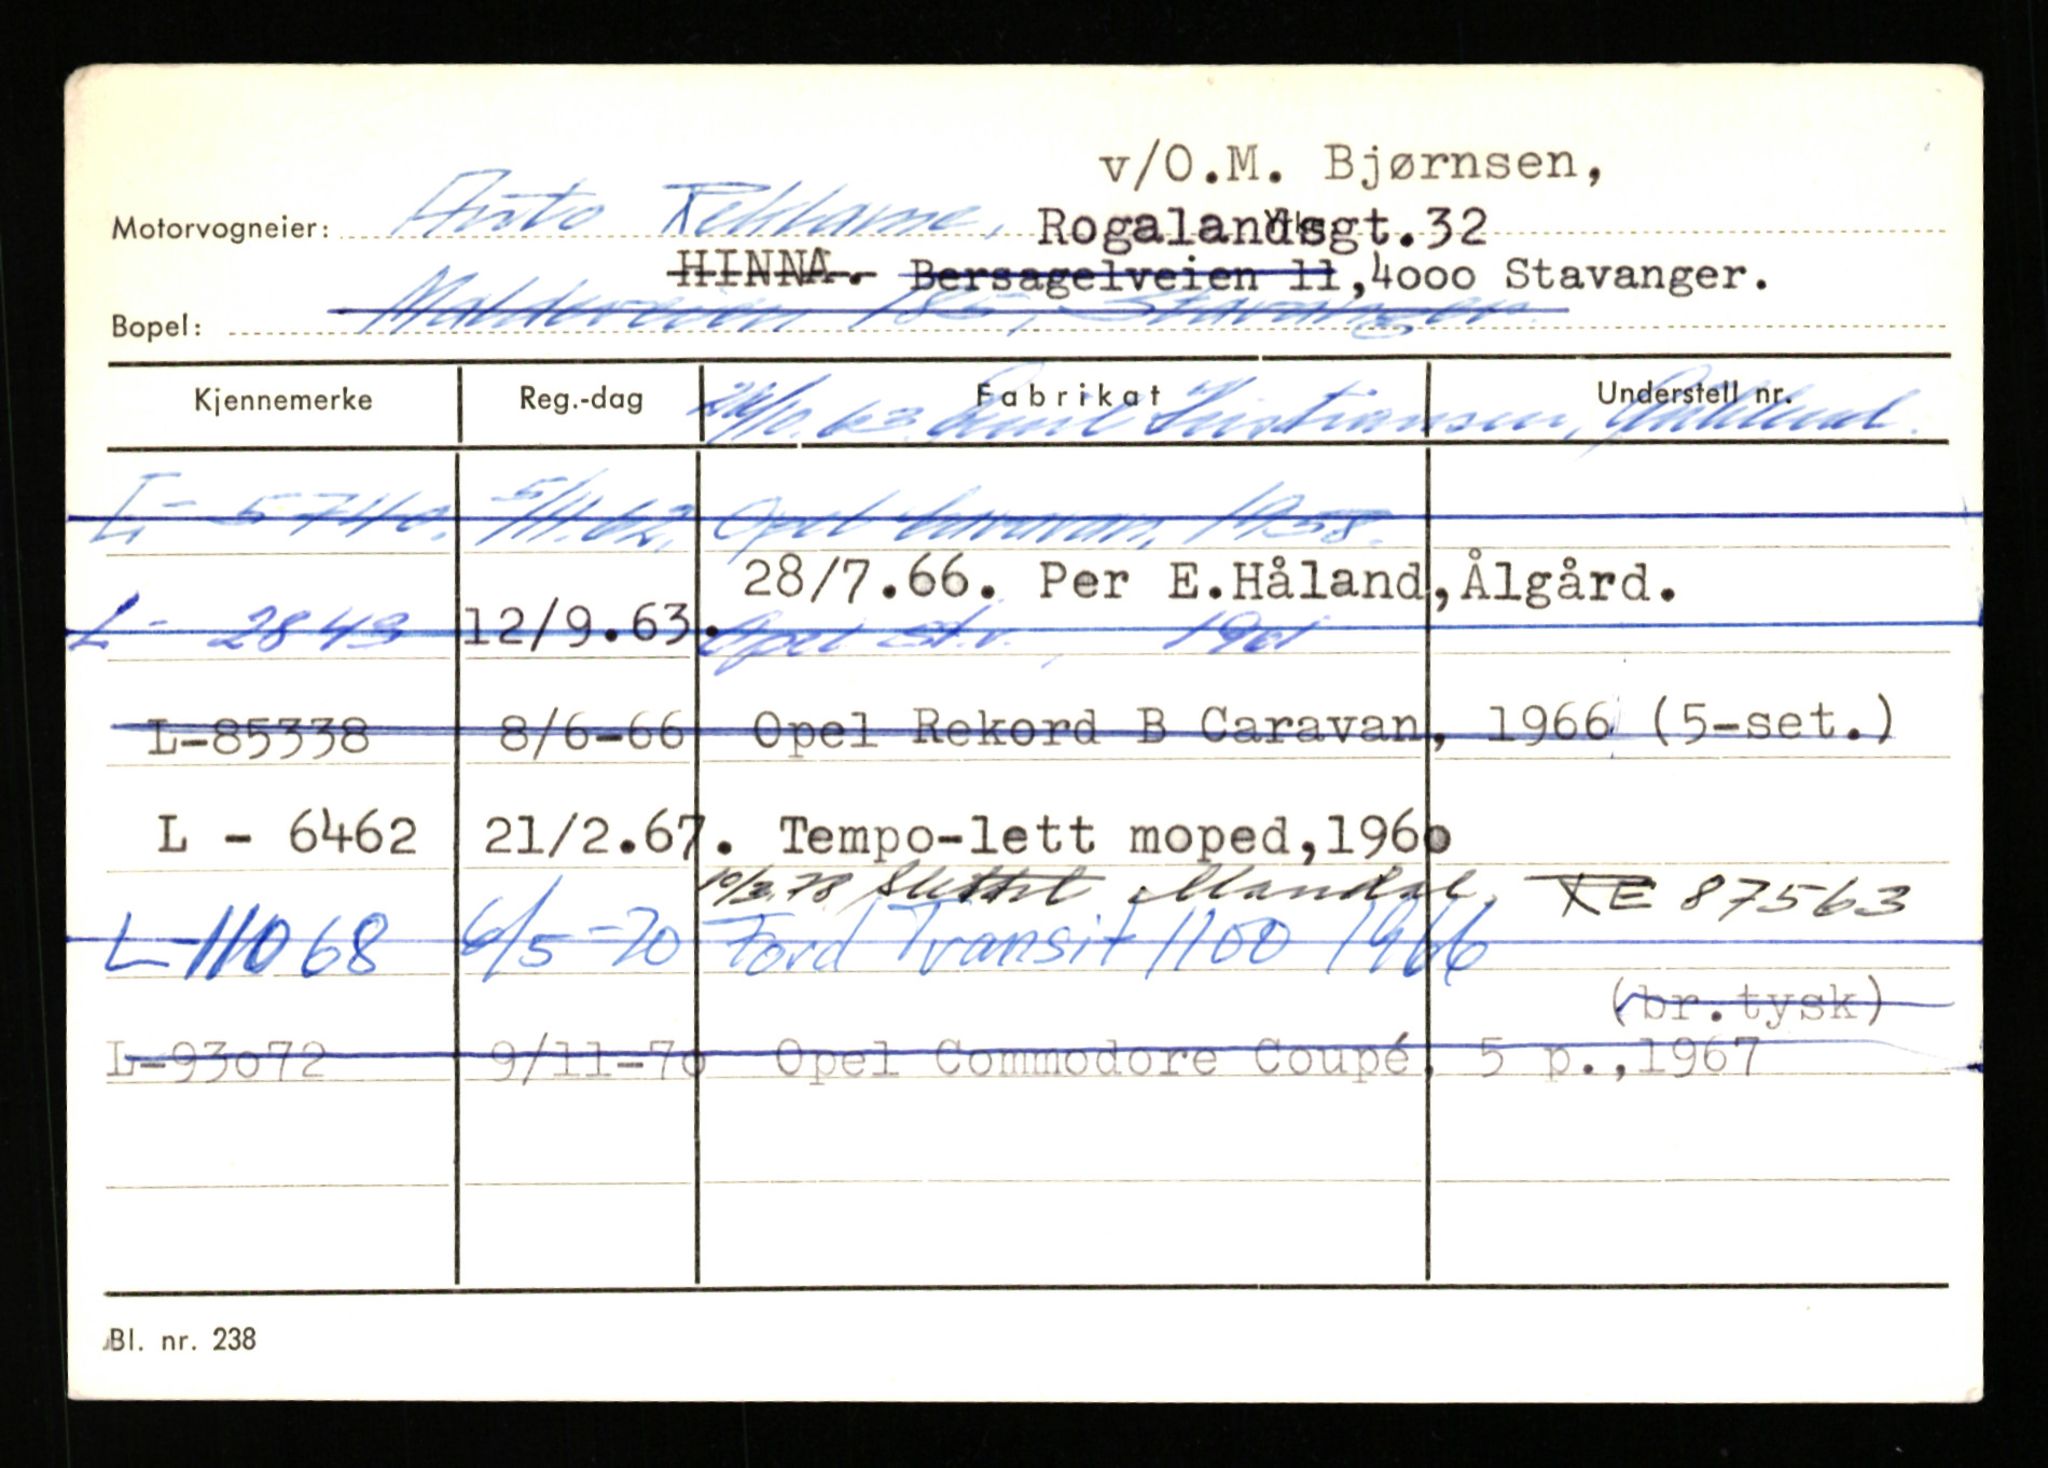 v/O.M. Bjørnsen,
Motorvogneier: Auto Reklame, Rogalandsgt.32
HINNA. Bersagelveien 11,4ooo Stavanger.
Bopel: Stavanger.
Kjennemerke Reg.-dag Fabrikat Understell nr.
Kristiansen,
L- 5740. 5/11.62. Opel Caravan, 1958.
28/7.66. Per E.Håland,Ålgård.
L- 2843 12/9.63. Opel st.v., 1961
L-85338 8/6-66 Opel Rekord B Caravan, 1966 (5-set.)
L - 6462 21/2.67. Tempo-lett moped,196o
10/3.78 Slettet Mandal. KE 87563
L-11068 6/5-70 Ford Transit 1100 1966
(br.tysk)
L-93o72 9/11-7o Opel Commodore Coupé, 5 p.,1967
Bl. nr. 238